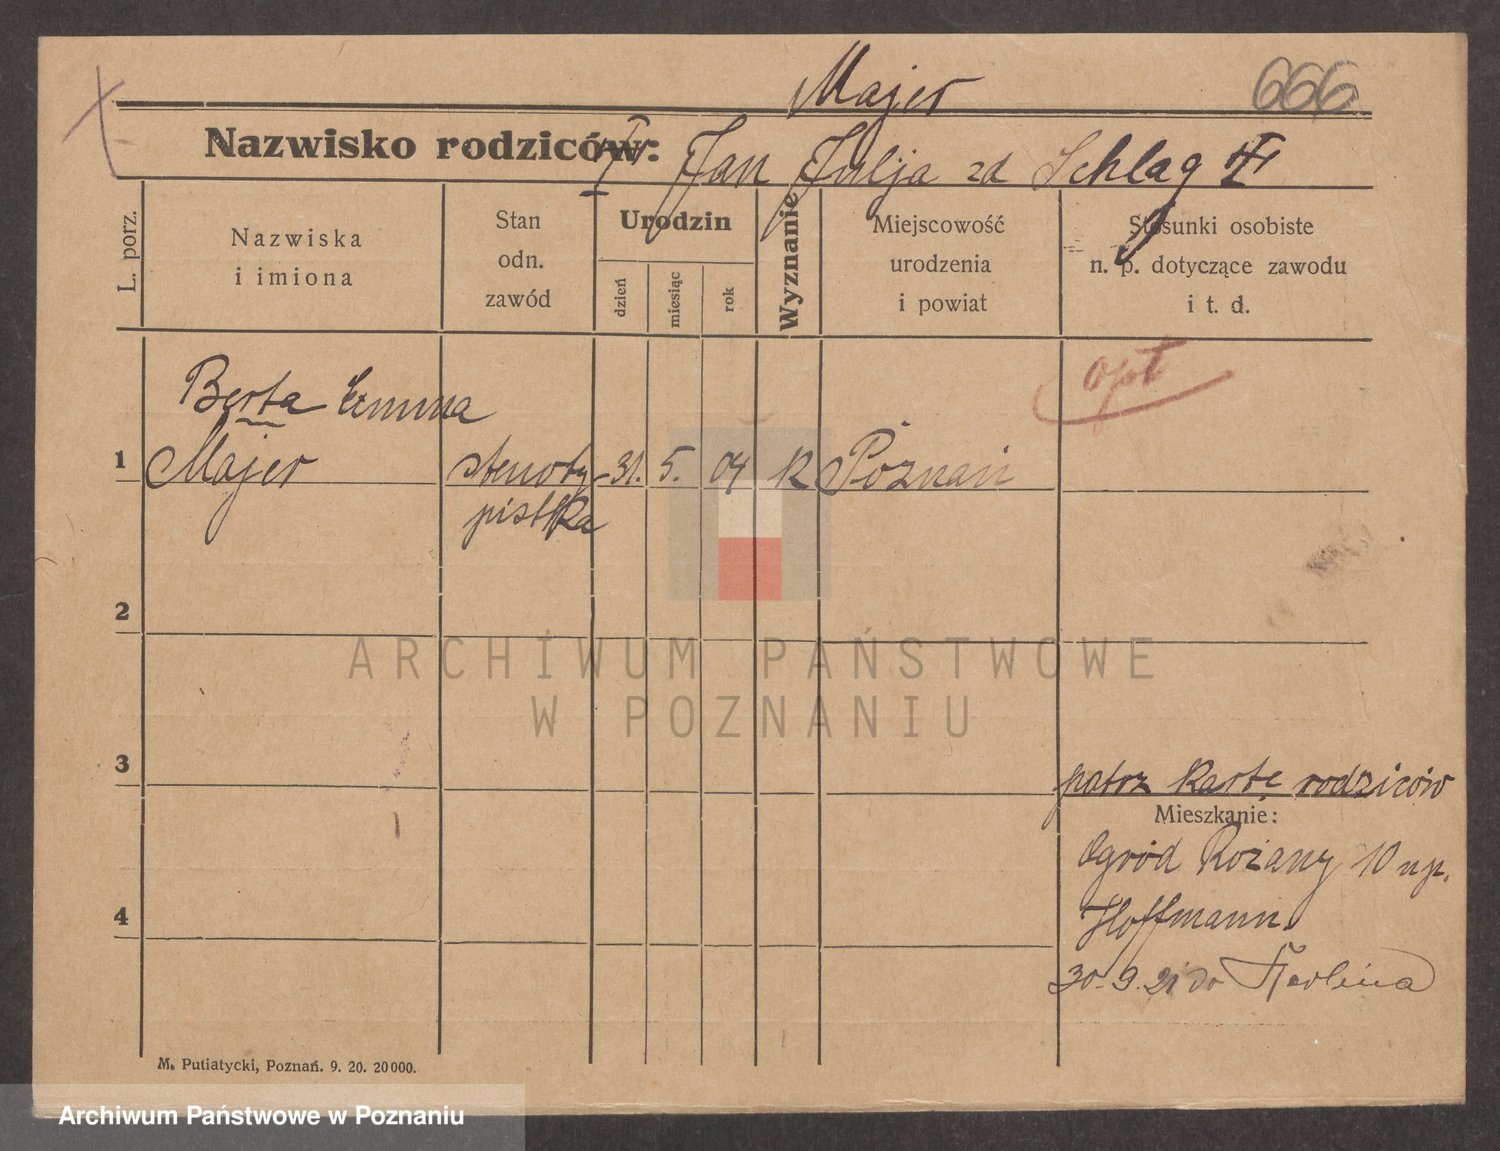 Majer
666
Nazwisko rodziców: Jan Julja zd Schlag
L. porz.
Nazwiska
i imiona
Stan
odn.
zawód
Urodzin
dzień
miesiąc
rok
Wyznanie
Miejscowość
urodzenia
i powiat
Stosunki osobiste
n. p. dotyczące zawodu
i t. d.
opt
Berta Emma
1 Majer stenoty- 31. 5. 04 k Poznań
pistka
2
ARCHIWUM PAŃSTWOWE
W POZNANIU
3
patrz kartę rodziców
Mieszkanie:
Ogród Rożany 10 np.
Hoffmann.
4
30.9.21 do Berlina
M. Putiatycki, Poznań. 9. 20. 20000.
Archiwum Państwowe w Poznaniu